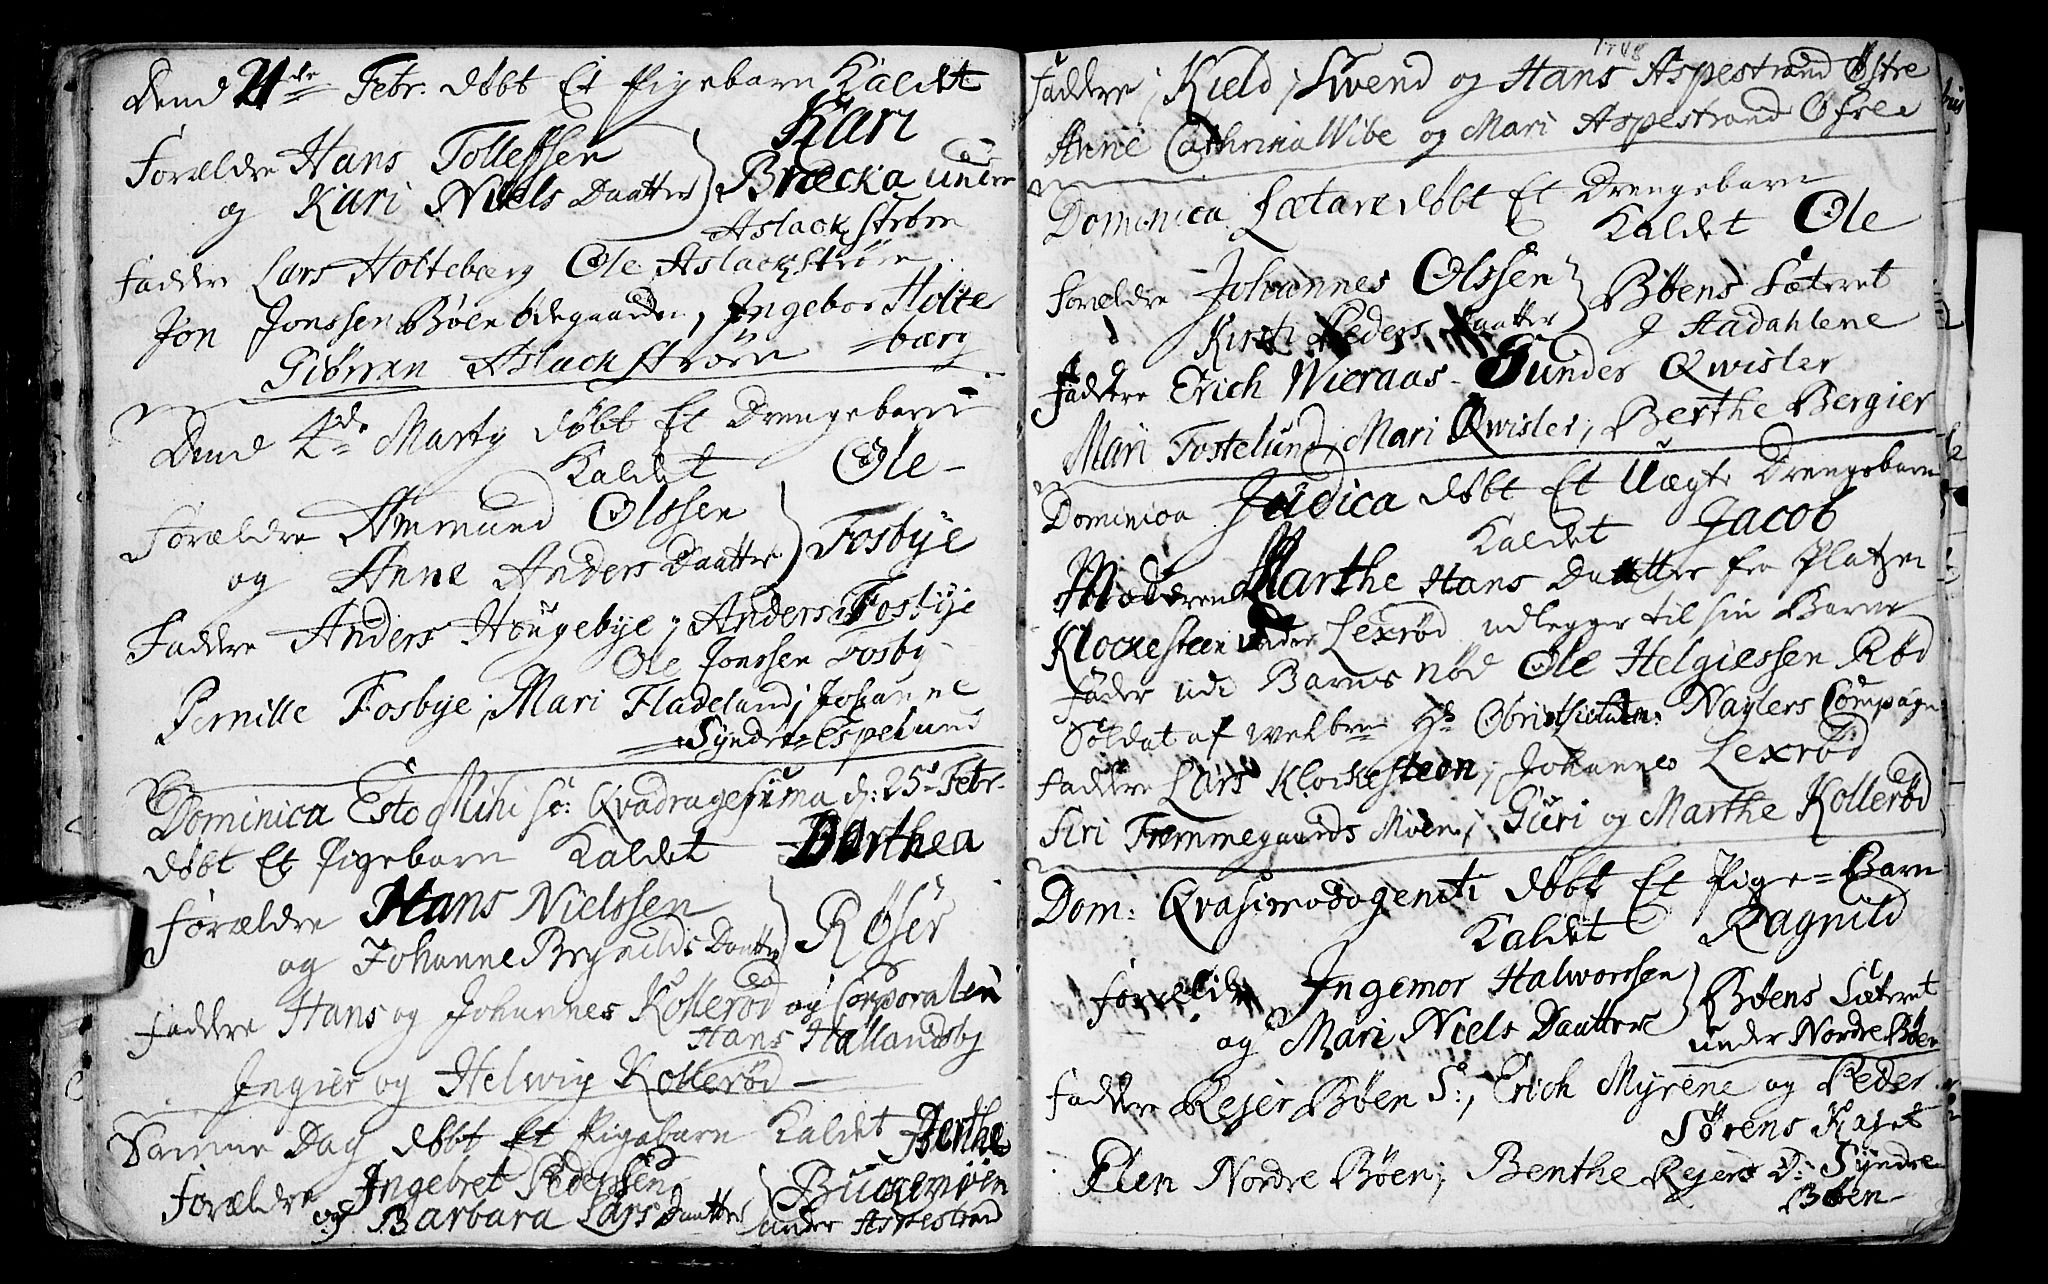 Dend 21de Febr. døbt Et Pigebarn Kaldet
Kari
Forældre Hans Tollefssen
og Kari Niels Daatter
Bræcka under
Aslackstrøm
Faddre Lars Holtebærg Ole Aslackstrøm
Jon Jonssen Bøen ødegaarden, Ingebor Holte
=bærg
Aslackstrøm
Dend 4de Marty døbt Et Drengebarn
Kaldet Ole
Forældre Ammund Olssen
og Anne Anders Daatter
Fosbye
Faddre Anders Hougebye; Anders Fosbye
Ole Jonssen Fosby
Pernille Fosbye; Mari Fladelund; Johanne
Syndre Espelund
Dominica Esto Mihi so: Qvadragesima d: 25 Febr.
døbt Et Pigebarn Kaldet Dorthea
Forældre Hans Nielssen
og Johanne Brynilds Daatter
Røser
Faddre Hans og Johannes Kollerød og Corporalen
Hans Hallandsby
Ingier og Helwig Kollerød
Samme Dag døbt Et Pigebarn Kaldet Berthe
Forældre Ingebret Pederssen
og Barbara Lars Daatter
Buggemoen
under Aspestrand
1708
Faddre; Kield, Svend og Hans Aspestrand Østre
Anne Cathrina Wibe og Mari Aspestrand Øfre
Dominica Lætare døbt Et Drengebarn
Kaldet Ole
Forældre Johannes Olssen
Kirsti Peders Daatter
Bøens Sæteret
J Aadahlene
Faddre Erich Wieraas - Gunder Qwisler
Mari Fostelund, Mari Qwisler, Berthe Bergier
Dominica Judica døbt Et Uægte Drengebarn
Kaldet Jacob
Moderen Marthe Hans Daatter fra Platzen
Klockesteen under Lexrød udlegger til sin Barne
fader udi Barns nød Ole Helgiessen Rød
Soldat af welbne Hr Obristlieutn: Naylers Compagn
Faddre Lars Klockesteen, Johannes Lexrød
Siri Fræmmegaards Moen; Guri og Marthe Kollerød
Dom: Qvasimodogeniti døbt Et Pige=Barn
Kaldet Ragnild
Forældre Ingemor Halworssen
og Mari Niels Daatter
Bøens Sæteret
under Nordre Bøen
Faddre Rejer Bøen S:, Erich Myrene og Peder
Sørens Kaset
Elen Nordre Bøen; Benthe Rejers D: Syndre
Bøen